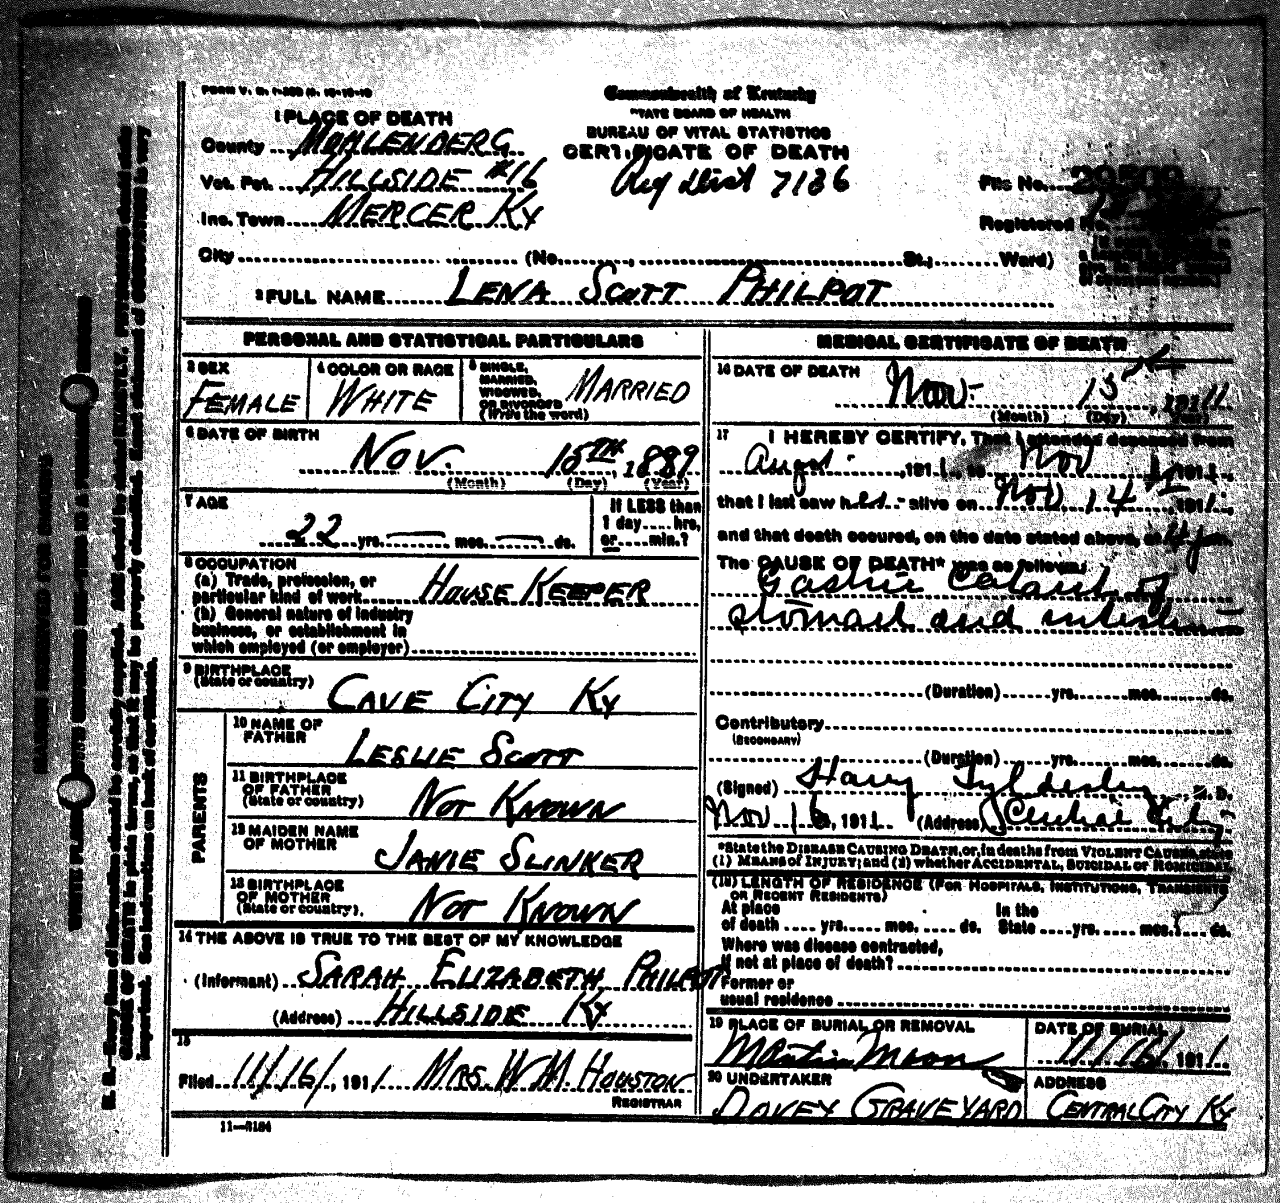 FORM V. S. 1-
Commonwealth of Kentucky
STATE BOARD OF HEALTH
BUREAU OF VITAL STATISTICS
CERTIFICATE OF DEATH
Reg Dist 7186
1 PLACE OF DEATH
County MOHLENBERG
Vot. Pct. HILLSIDE #16
Inc. Town MERCER KY
City (No. , St.; Ward)
File No. 29509
Registered No.
2 FULL NAME LENA SCOTT PHILPOT
PERSONAL AND STATISTICAL PARTICULARS
3 SEX
FEMALE
4 COLOR OR RACE
WHITE
5 SINGLE,
MARRIED,
WIDOWED,
OR DIVORCED
(Write the word)
MARRIED
6 DATE OF BIRTH
NOV. 15TH 1889
(Month) (Day) (Year)
7 AGE
22 yrs. — mos. — ds.
If LESS than
1 day.... hrs,
or.....min.?
8 OCCUPATION
(a) Trade, profession, or
particular kind of work HOUSE KEEPER
(b) General nature of industry
business, or establishment in
which employed (or employer)
9 BIRTHPLACE
(State or country)
CAVE CITY KY
PARENTS
10 NAME OF
FATHER
LESLIE SCOTT
11 BIRTHPLACE
OF FATHER
(State or country)
NOT KNOWN
12 MAIDEN NAME
OF MOTHER
JANIE SLINKER
13 BIRTHPLACE
OF MOTHER
(State or country)
NOT KNOWN
14 THE ABOVE IS TRUE TO THE BEST OF MY KNOWLEDGE
(Informant) SARAH ELIZABETH PHILPOT
(Address) HILLSIDE KY
15
Filed 11/16/, 1911 MRS. W M. HOUSTON
REGISTRAR
11—3184
MEDICAL CERTIFICATE OF DEATH
16 DATE OF DEATH
Nov. 15, 1911
(Month) (Day) (Year)
17 I HEREBY CERTIFY, That I attended deceased from
August, 1911, to Nov 1911,
that I last saw her alive on Nov 14, 1911,
and that death occured, on the date stated above, at m.
The CAUSE OF DEATH* was as follows:
Gastric Catarrh of
stomach and intestine
(Duration) yrs. mos. ds.
Contributory
(SECONDARY)
(Duration) yrs. mos. ds.
(Signed) Harry Tyldesley, M. D.
Nov 16, 1911 (Address) Central City
*State the DISEASE CAUSING DEATH, or, in deaths from VIOLENT CAUSES, state
(1) MEANS OF INJURY; and (2) whether ACCIDENTAL, SUICIDAL or HOMICIDAL
(18) LENGTH OF RESIDENCE (FOR HOSPITALS, INSTITUTIONS, TRANSIENTS
OR RECENT RESIDENTS)
At place In the
of death yrs. mos. ds. State yrs. mos. ds.
Where was disease contracted,
if not at place of death?
Former or
usual residence
19 PLACE OF BURIAL OR REMOVAL
Martin Moore
DATE OF BURIAL
11/16/ 1911
20 UNDERTAKER
DOVEY GRAVEYARD
ADDRESS
CENTRAL CITY KY
MARGIN RESERVED FOR BINDING
N. B.—Every item of information should be carefully supplied. AGE should be stated EXACTLY. PHYSICIANS should state
CAUSE OF DEATH in plain terms, so that it may be properly classified. Exact statement of OCCUPATION is very
important. See instructions on back of certificate.